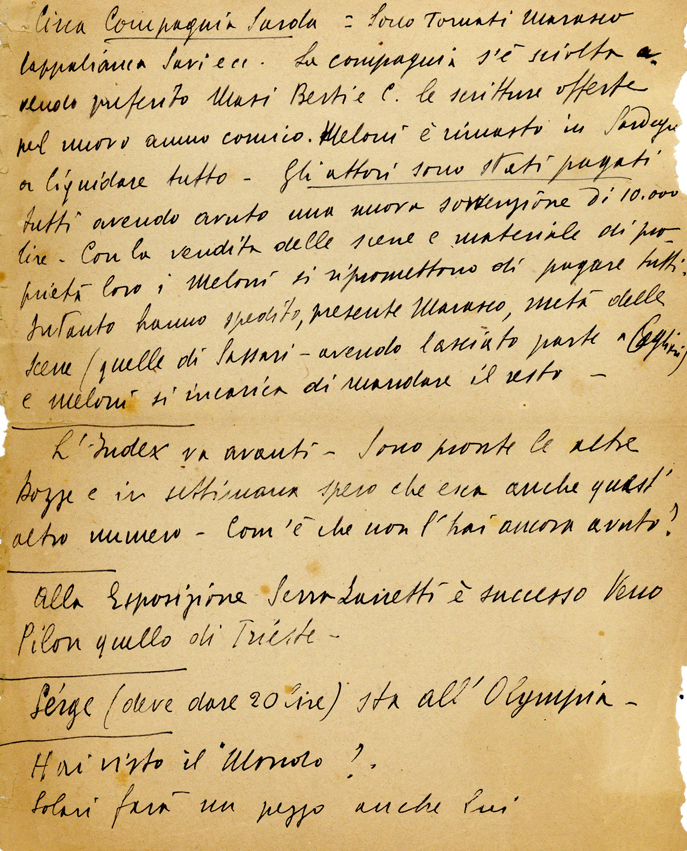 Circa Compagnia Sarda = Sono Tornati Marasco
Cappabianca Savi ecc. La compagnia s'è sciolta a-
vendo preferito Masi Berti e C. le scritture offerte
pel nuovo anno comico. Meloni è rimasto in
a liquidare tutto - Gli attori sono stati pagati
tutti avendo avuto una nuova sovvenzione di 10.000
lire - Con la vendita delle scene e materiale di pro-
prietà loro i Meloni si ripromettono di pagare tutti.
Intanto hanno spedito, presente Marasco, metà delle
scene (quelle di Sassari - avendo lasciato parte a Cagliari)
e Meloni si incarica di mandare il resto -
L'Index va avanti - Sono pronte le altre
bozze e in settimana spero che esca anche quest'
altro numero - Com'è che non l'hai ancora avuto?
Alla Esposizione Serra è successo Veno
Pilon quello di Trieste -
Sérge (deve dare 20 lire) sta all'Olympia -
Hai visto il "Mondo"?.
Solari farà un pezzo anche Lui